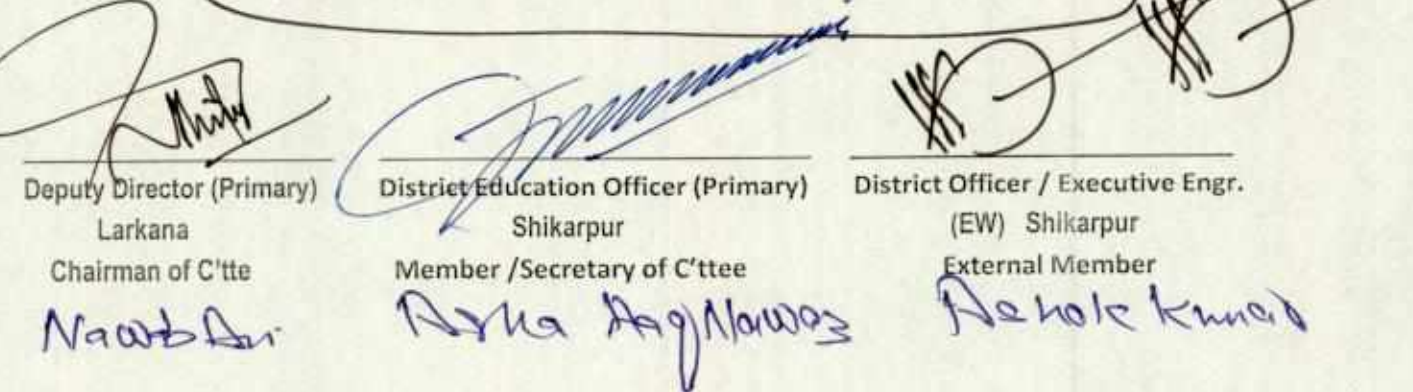 Deputy Director (Primary)
Larkana
Chairman of C'tte
Nawab
District Education Officer (Primary)
Shikarpur
Member /Secretary of C'ttee
Haq Nawaz
District Officer / Executive Engr.
(EW) Shikarpur
External Member
Ashok Kumar